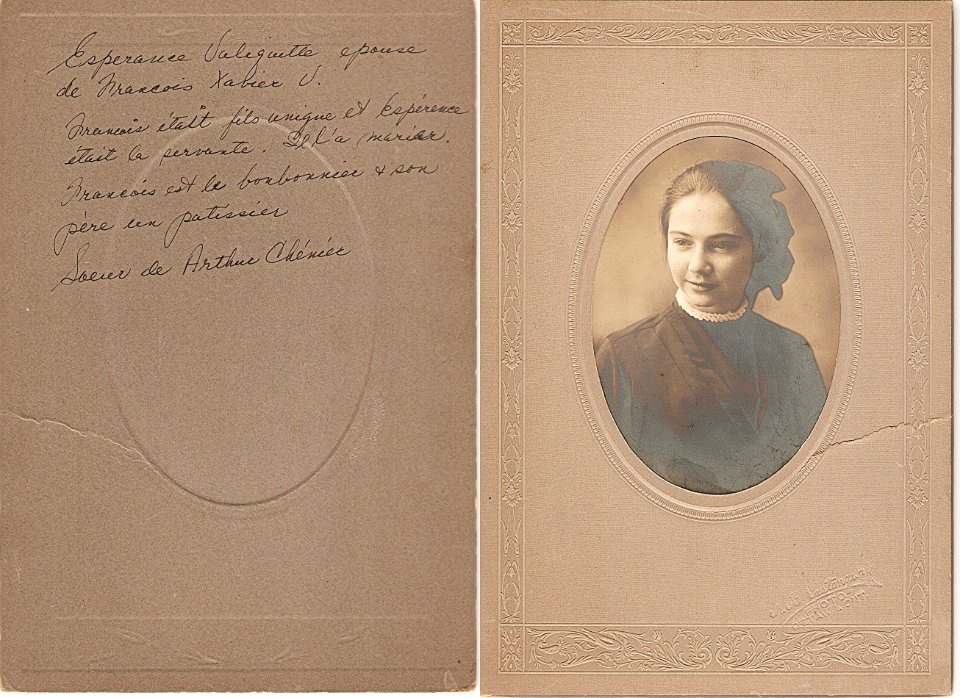 Esperance Valiquitte epouse
de Francois Xabier V.
Francois étaÎt fils unique et Espérence
était la servante. Il l'a marier.
Francois est le bonbonnier & son
père un patissier
Soeur de Arthur Chénier
PHOTO.